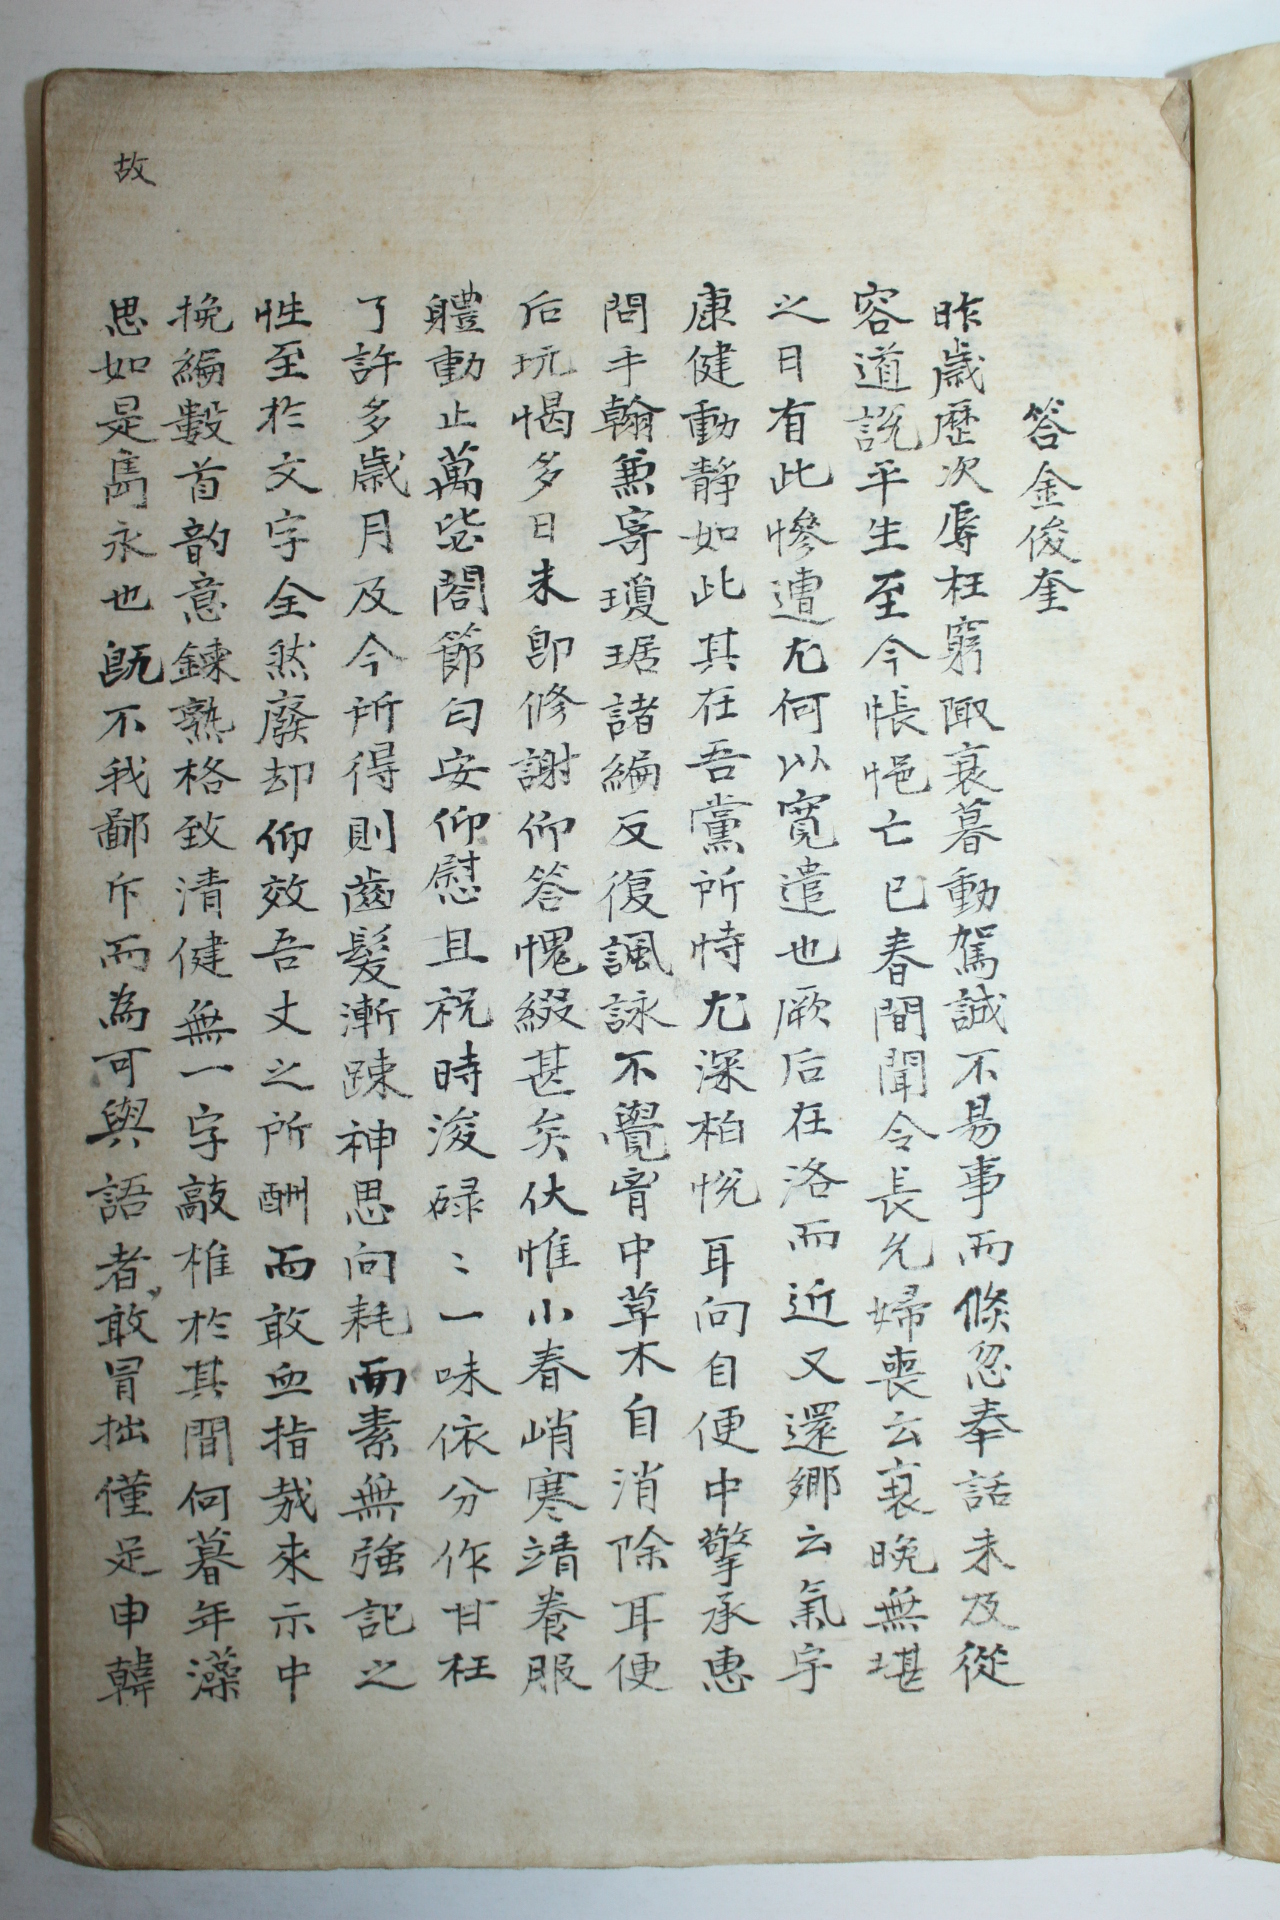 答金俊奎
昨歲歷次辱枉窮陬衰暮動駕誠不易事而倐忽奉話未及從
容道說平生至今悵悒亡已春間聞令長允婦喪云衰晚無堪
之日有此慘遭尤何以寬遣也厥后在洛而近又還鄉云氣宇
康健動靜如此其在吾黨所恃尤深柏悅耳向自便中擎承惠
問手翰兼寄瓊琚諸編反復諷詠不覺胷中草木自消除耳便
后玩愒多日未卽修謝仰答愧綴甚矣伏惟小春峭寒靖養服
軆動止萬毖閤節匀安仰慰且祝時浚碌〻一味依分作甘枉
了許多歲月及今所得則齒髮漸踈神思向耗而素無強記之
性至扵文字全然廢却仰效吾丈之所酬而敢血指哉來示中
挽編數首韵意鍊熟格致清健無一字敲椎扵其間何暮年藻
思如是雋永也旣不我鄙斥而為可與語者敢冒拙僅足申韓
故